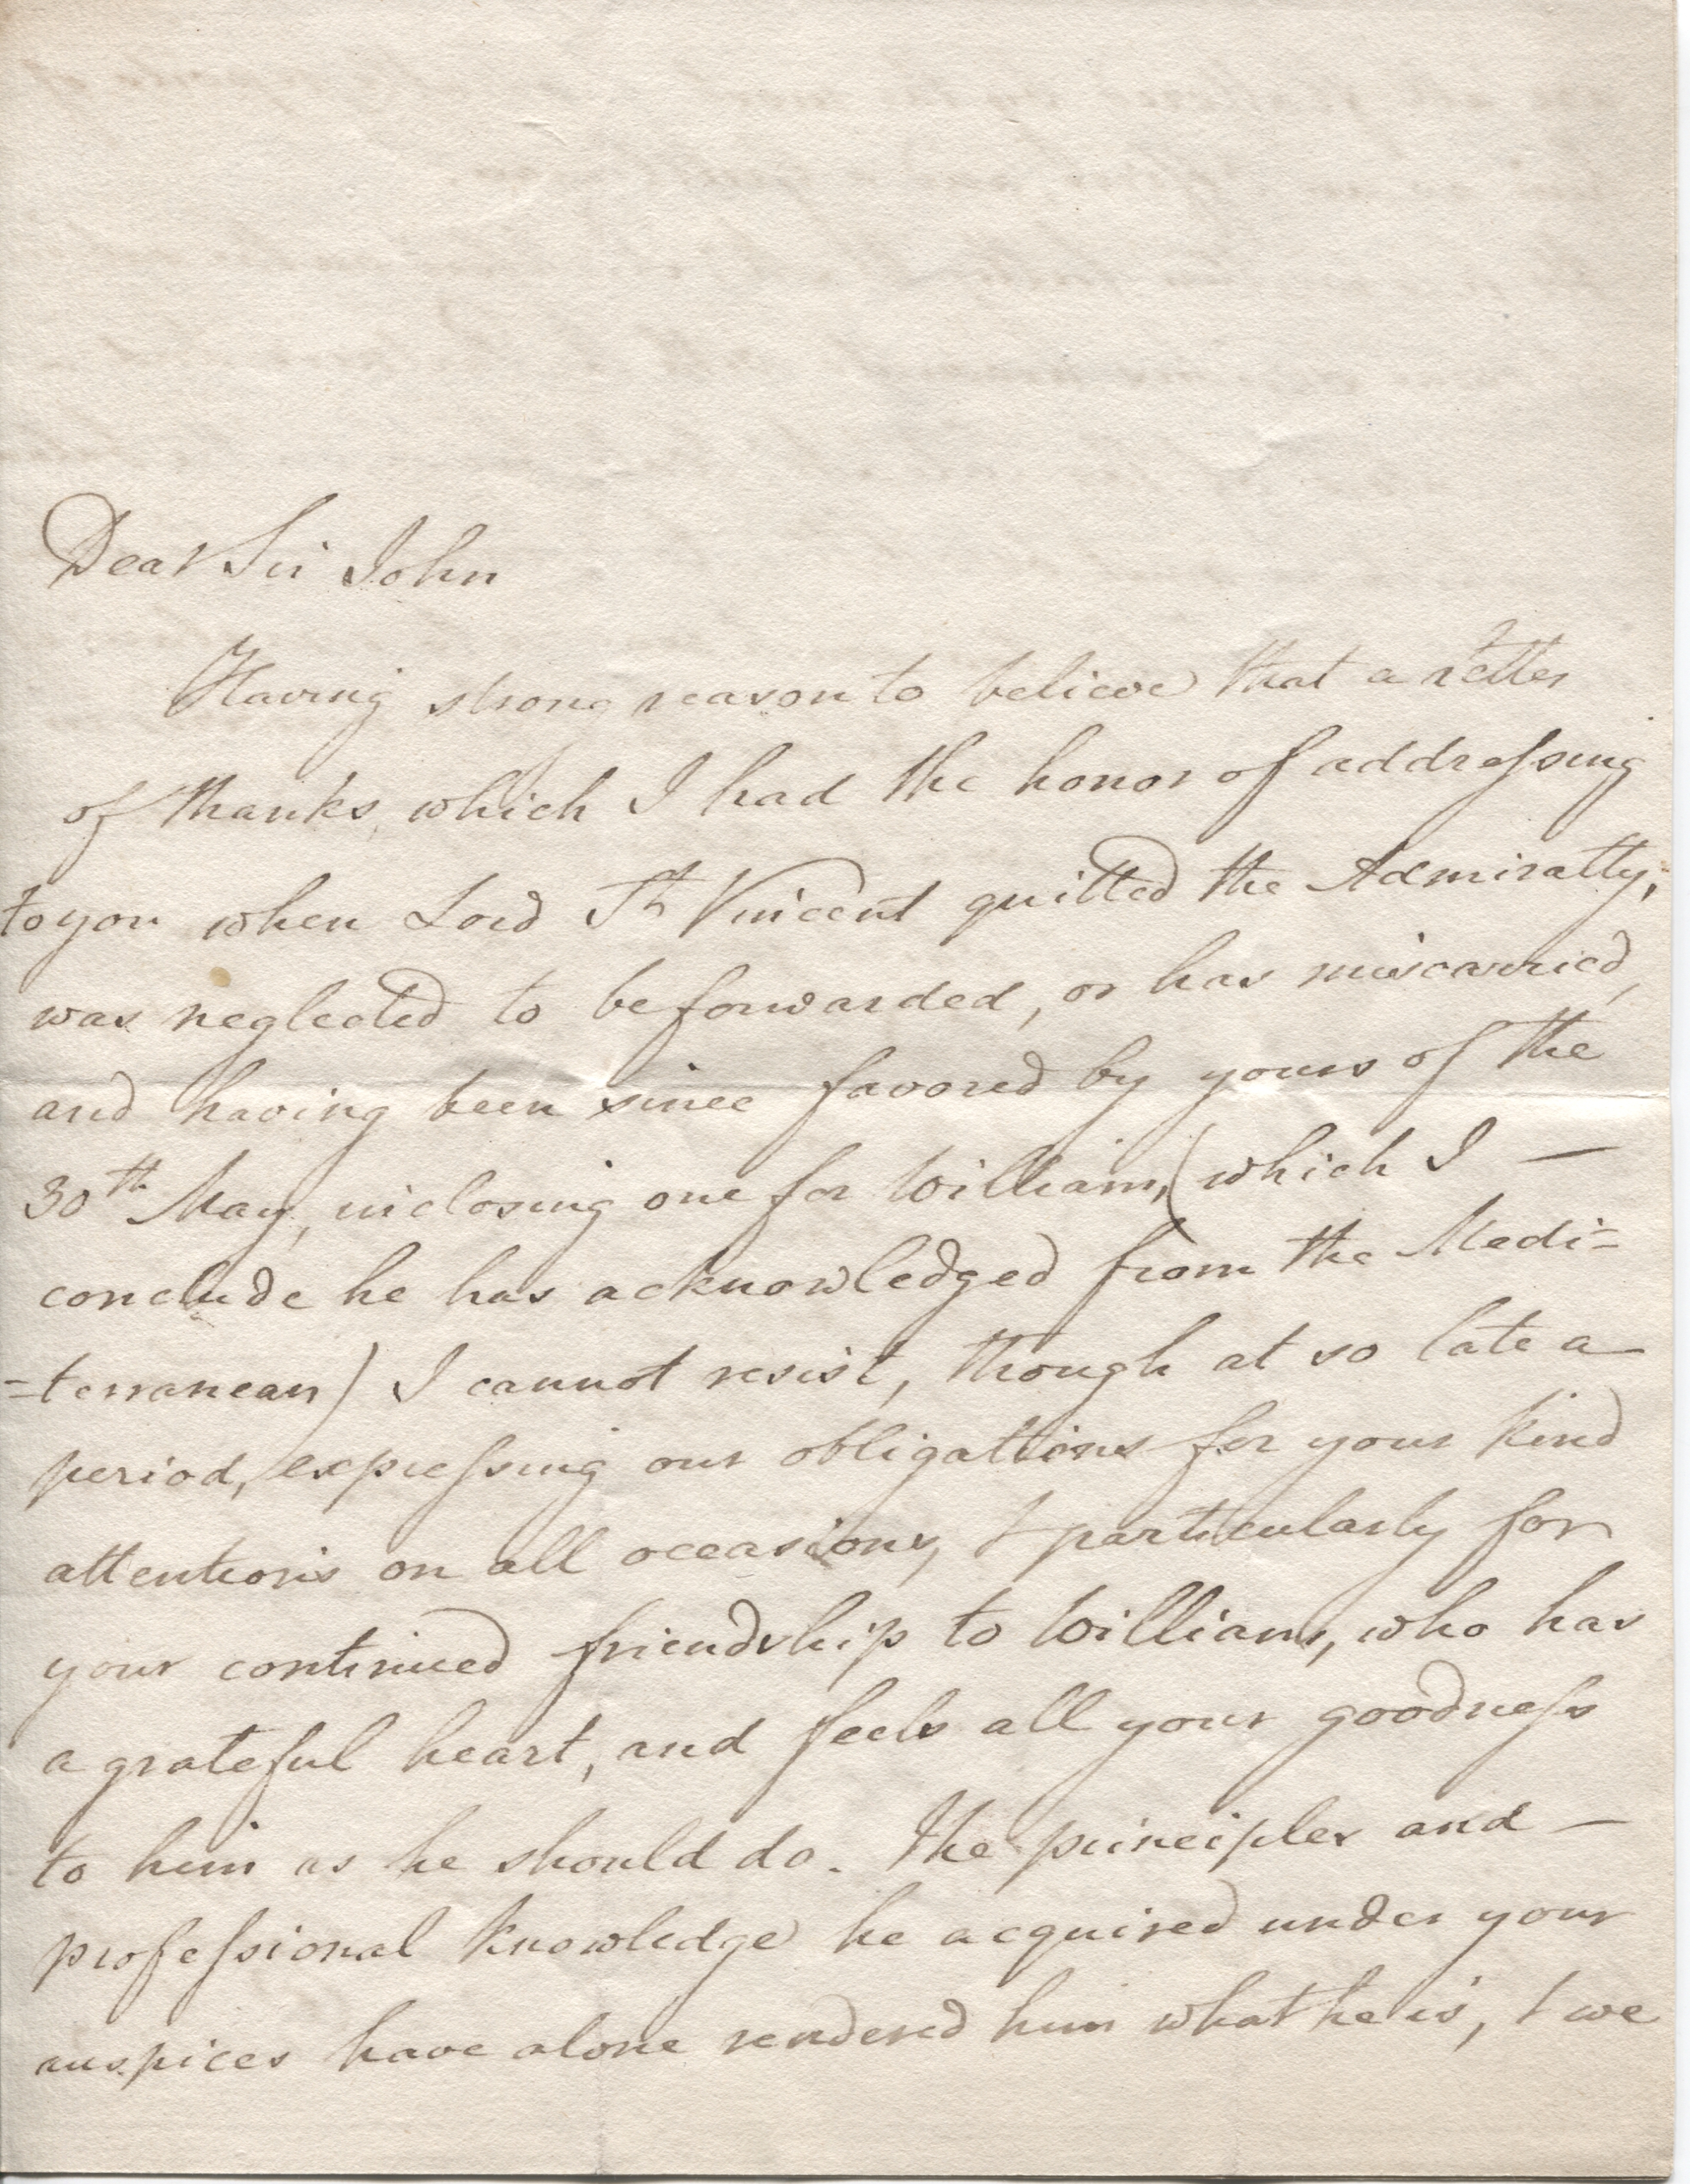 Dear Sir John
Having strong reason to believe that a letter
of thanks, which I had the honor of addreſsing
to you when Lord St Vincent quitted the Admiralty,
was neglected to be forwarded, or has miscarried,
and having been since favored by yours of the
30th May, inclosing one for William, (which I —
conclude he has acknowledged from the Medi=
=terranean) I cannot resist, though at so late a
period, expreſsing our obligations for your kind
attentions on all occasions, & particularly for
your continued friendship to William, who has
a grateful heart, and feels all your goodneſs
to him as he should do. The principles and —
profeſsional knowledge he acquired under your
auspices have alone rendered him what he is, & we